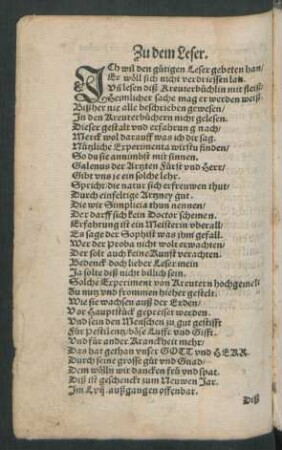 Zu dem Leser.
ICh wil den gütigen Leser gebeten han/
Er wöll sich nicht verdriessen lan.
Vñ lesen diß Kreuterbüchlin mit fleiß/
Heimlicher sache mag er werden weiß.
Biß her nie alle beschrieben gewesen/
In den Kreuterbüchern nicht gelesen.
Dieser gestalt vnd erfahrung nach/
Merck wol darauff was ich dir sag.
Nützliche Experimenta wirstu finden/
So du sie annimbst mit sinnen.
Galenus der Artzten Fürst vnd Herr/
Gibt vns je ein solche lehr.
Spricht: die natur sich erfreuwen thut/
Durch einfeltige Artzney gut.
Die wir Simplicia thun nennen/
Der darff sich kein Doctor schemen.
Erfahrung ist ein Meisterin vberall/
Es sage der Sophist was jhm gefall.
Wer der Proba nicht wolt erwachten/
Der solt auch keine Kunst verachten.
Bedenck doch lieber Leser mein
Ja solts diß nicht billich sein.
Solche Experiment von Kreutern hochgemelt/
Zu nutz vnd frommen hieher gestelt.
Wie sie wachsen auß der Erden/
Vor Hauptstück gepreiset werden.
Vnd sein den Menschen zu gut gestifft
Für Pestilentz/ böse Lufft vnd Gifft.
Vnd für ander Kranckheit mehr/
Das hat gethan vnser GOTT vnd HERR.
Durch seine grosse güt vnd Gnad/
Dem wölln wir dancken frü vnd spat.
Diß ist geschenckt zum Neuwen Jar.
Im Lxij. außgangen offenbar.
Diß